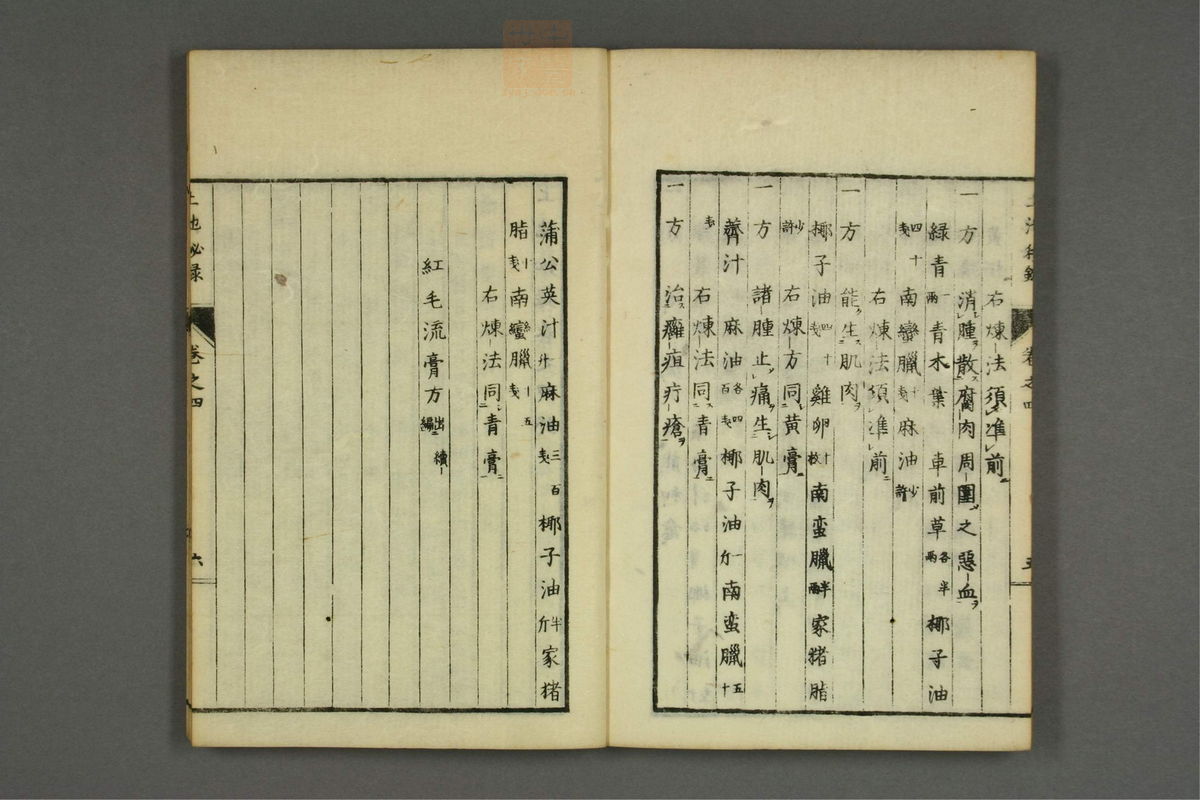 右煉法須準前
一方 消腫散腐肉周圍之惡血
緑青一兩 青木葉 車前草各半兩 椰子油
四十匁 南蠻臘十匁 麻油少許
右煉法須準前
一方 能生肌肉
椰子油四十匁 雞卵十枚 南蛮臘半兩 家猪脂
少許 右煉方同黄膏
一方 諸腫止痛生肌肉
薺汁 麻油各四百匁 椰子油一斤 南蛮臘五十
匁 右煉法同青膏
一方 治癰疽疔瘡
卷之四
蒲公英汁 麻油三百匁 椰子油半斤 家猪
脂十匁 南蠻臘十五匁
右煉法同青膏
紅毛流膏方出續編
卷之四 六